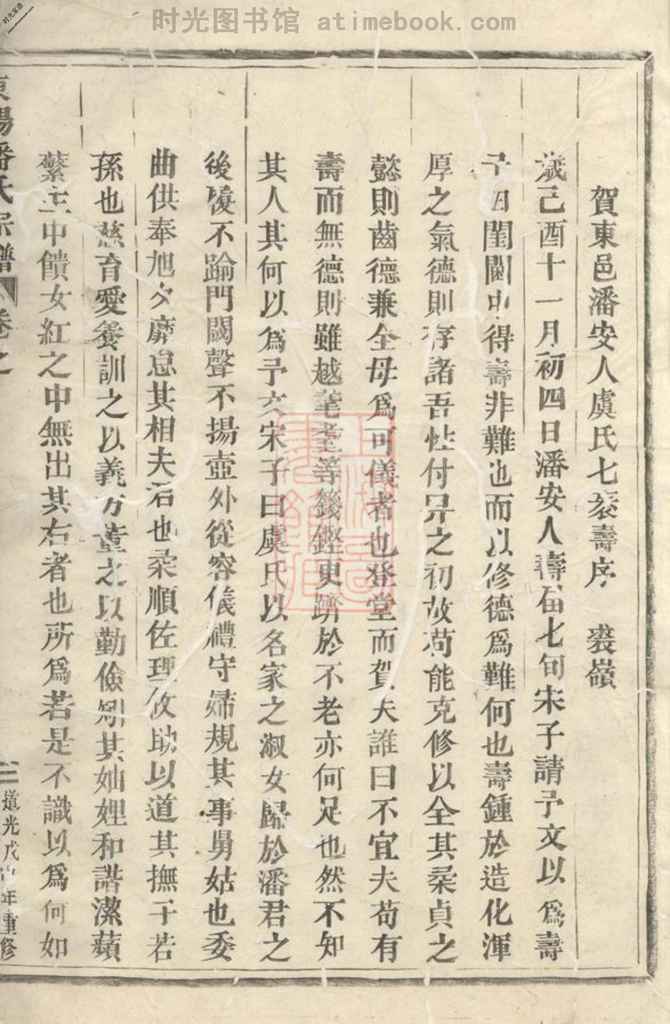 时光图书馆 atimebook.com
賀東邑潘安人虞氏七袠壽序 裘嶺
歲己酉十一月初四日潘安人壽屆七旬宋子請予文以爲壽
予曰閨閫中得壽非難也而以修德爲難何也壽鍾於造化渾
厚之氣德則存諸吾性付畀之初故苟能克修以全其柔貞之
懿則齒德兼全母爲可儀者也登堂而賀夫誰曰不宜夫苟有
壽而無德則雖越耄耋等籛鏗更躋於不老亦何足也然不知
其人其何以爲予文宋子曰虞氏以名家之淑女歸於潘君之
後優不踰門閾聲不揚壼外從容儀禮守婦規其事舅姑也委
曲供奉旭夕靡怠其相夫君也柔順佐理攸助以道其撫子若
孫也慈育愛養訓之以義方董之以勤儉矧其妯娌和諧潔蘋
蘩主中饋女紅之中無出其右者也所爲若是不識以爲何如
東陽潘氏宗譜 卷之
一 道光戊申年重修